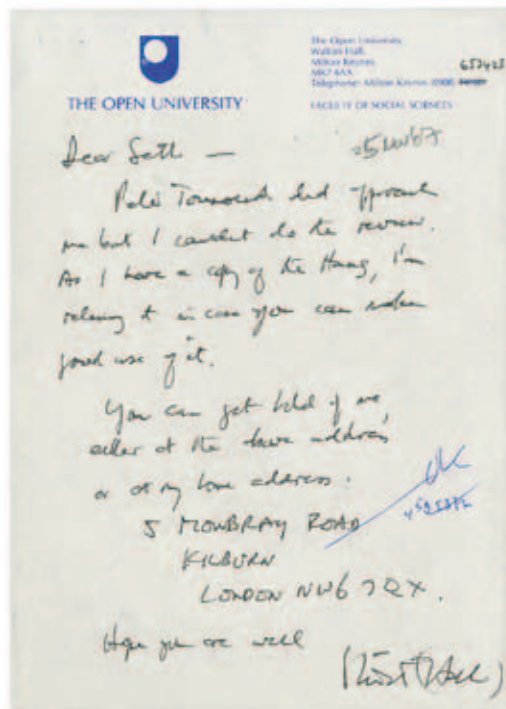 THE OPEN UNIVERSITY
The Open University
Walton Hall
Milton Keynes
MK7 6AA
Telephone: Milton Keynes 0908
FACULTY OF SOCIAL SCIENCES
Dear Seth —
Peter Townsend had approached
me but I couldn't do the review.
As I have a copy of the I'm
it in case you can make
good use of it.
You can get hold of me,
either at the above address
or at my home address:
5 MOWBRAY ROAD
KILBURN
LONDON NW6 7QX.
Hope you are well